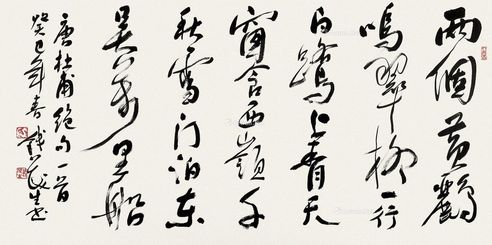 两個黄鸝
鳴翠柳一行
白鷺上青天
窗含西嶺千
秋雪门泊东
吴万里船
唐杜甫絶句一首
癸巳年春